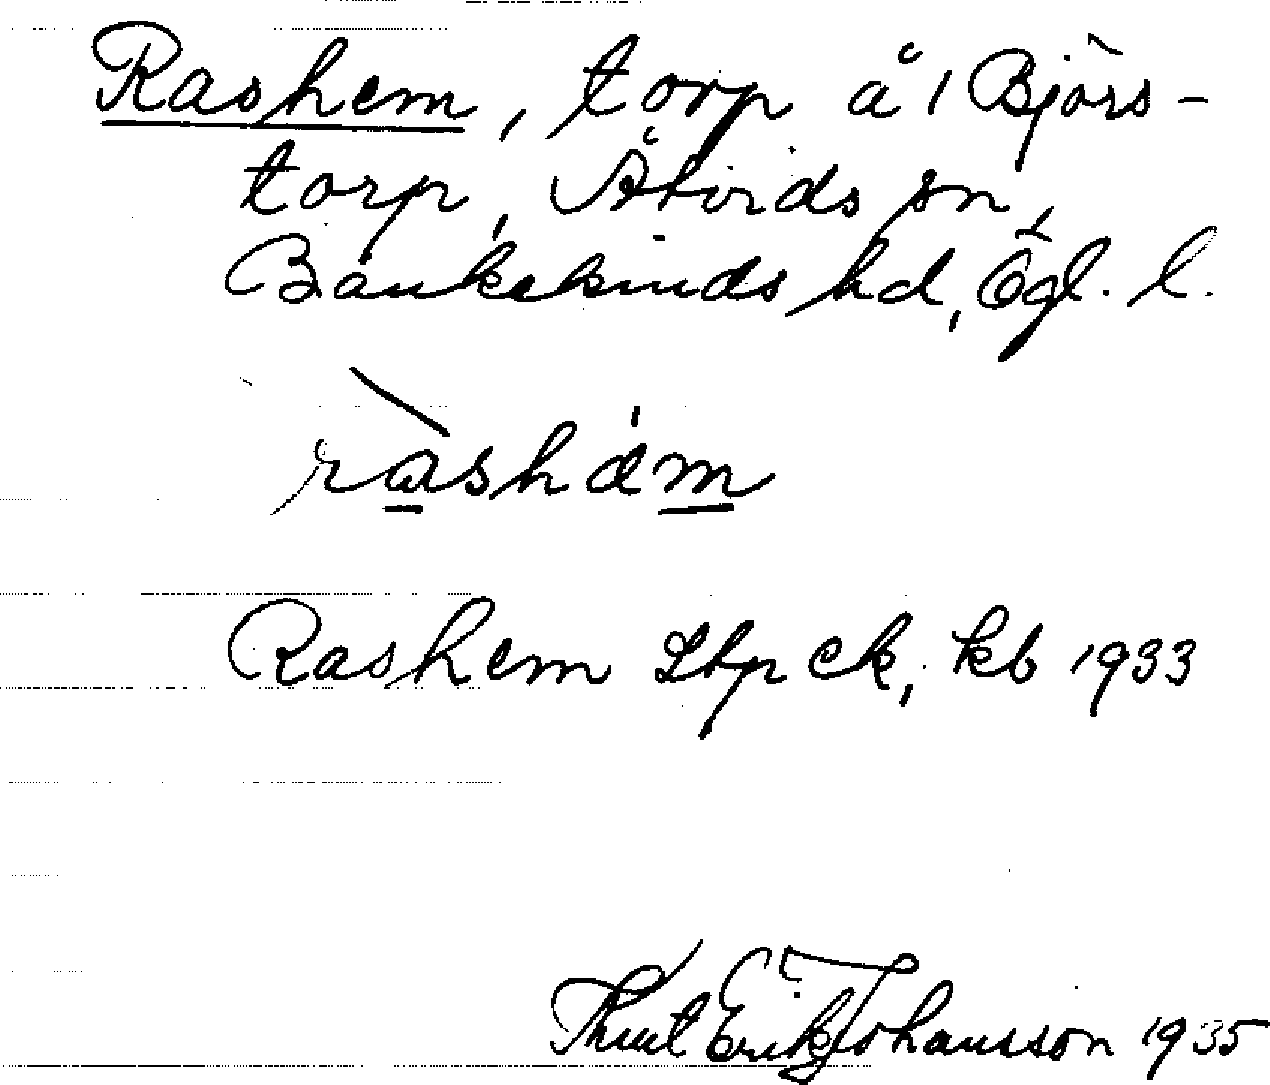 Rashem, torp å 1 Björs-
torp, Åtvids sn,
Bankekinds hd, Ögl. l.
ràshä́m
Rashem Lhp ek, kb 1933
Knut Erik Johansson 1935